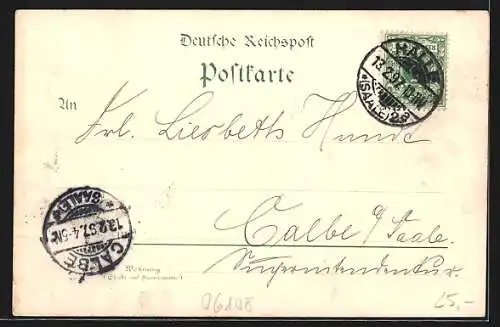 Deutsche Reichspost
Postkarte
An
Frl. Liesbeth Hunde
Calbe a/Saale.
Superintendentur.
Wohnung
(Straße und Hausnummer)
HALLE
13.2.97. 10-11V
*(SAALE)2g
CALBE
13.2.97. 4-5N.
*SAALE*
06108
25,-